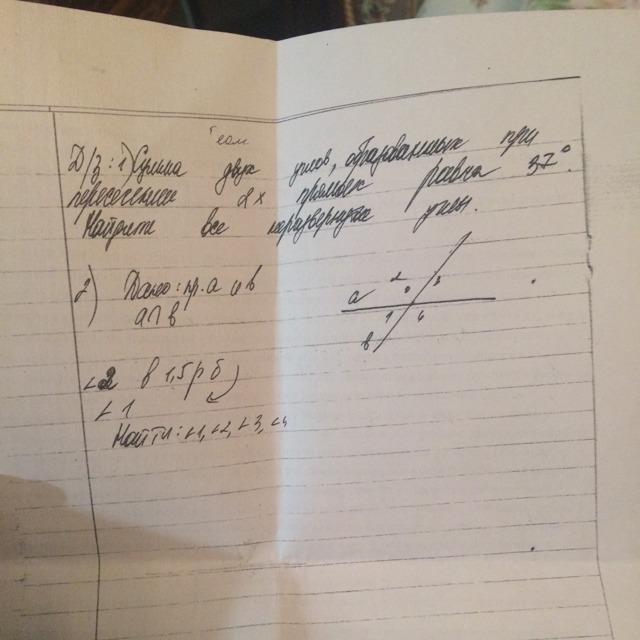 геом
Д/з: 1) Сумма двух углов, образованных при
пересечении 2х прямых равна 37°.
Найдите все неразвернутые углы.
2) Дано: пр. а и в
а ∩ в
а 2 3
о
1 4
в
∠2 в 1,5 р б
∠1
Найти: ∠1, ∠2, ∠3, ∠4